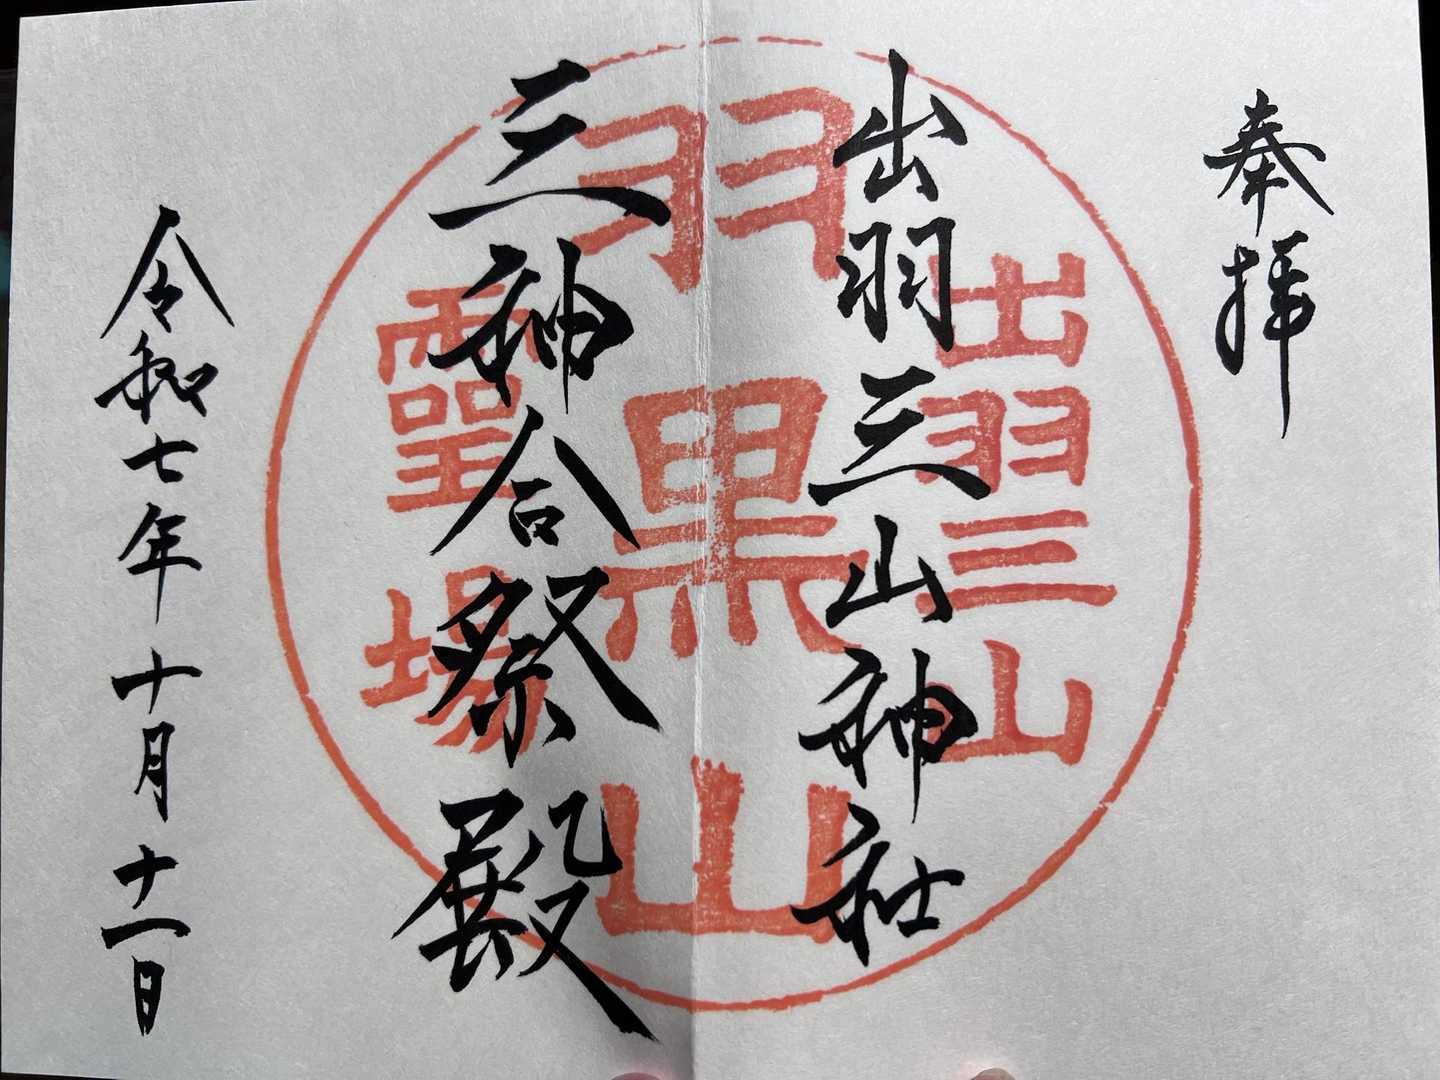 奉拝
出羽三山神社
三神合祭殿
令和七年十月十一日
出羽三山
羽黒山
霊場